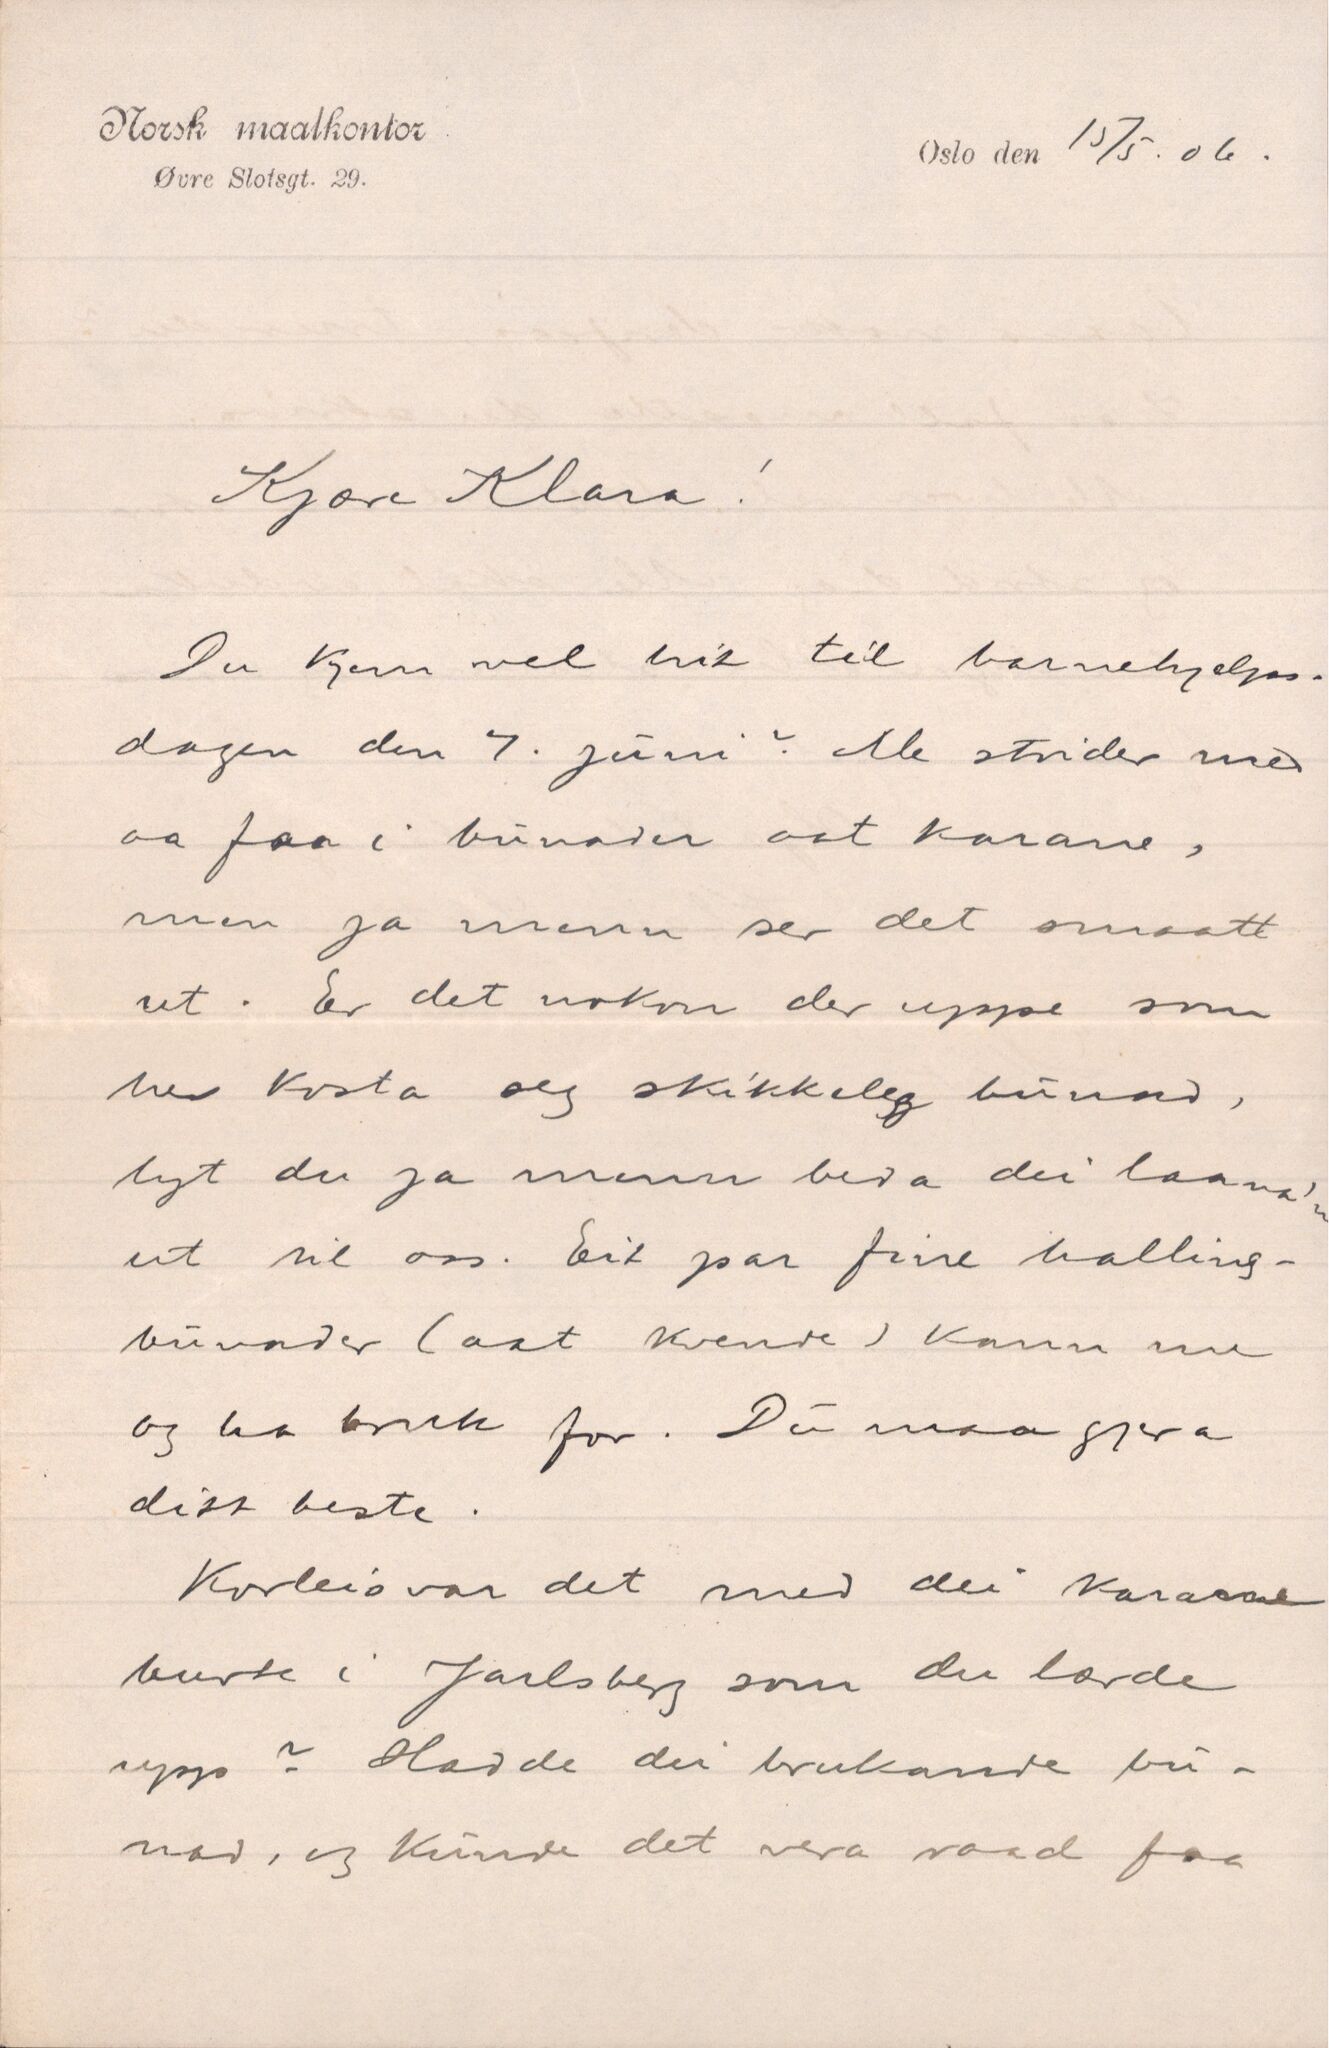 Norsk maalkontor
Øvre Slotsgt. 29.
Oslo den 15/5. 06.
Kjære Klara!
Du kjem vel hit til barnehjelps-
dagen den 7. juni? Me strider med
aa faa i bunader aat karane,
men ja menn ser det smaatt
ut. Er det nokon der uppe som
hev kosta seg skikkeleg bunad,
lyt du ja menn beda dei laana'n
ut til oss. Eit par fine halling-
bunader (aat kvende) kann me
og ha bruk for. Du maa gjera
ditt beste.
Korleis var det med dei karane
burte i Jarlsberg som du lærde
upp? Hadde dei brukande bu-
nad, og kunde det vera raad faa